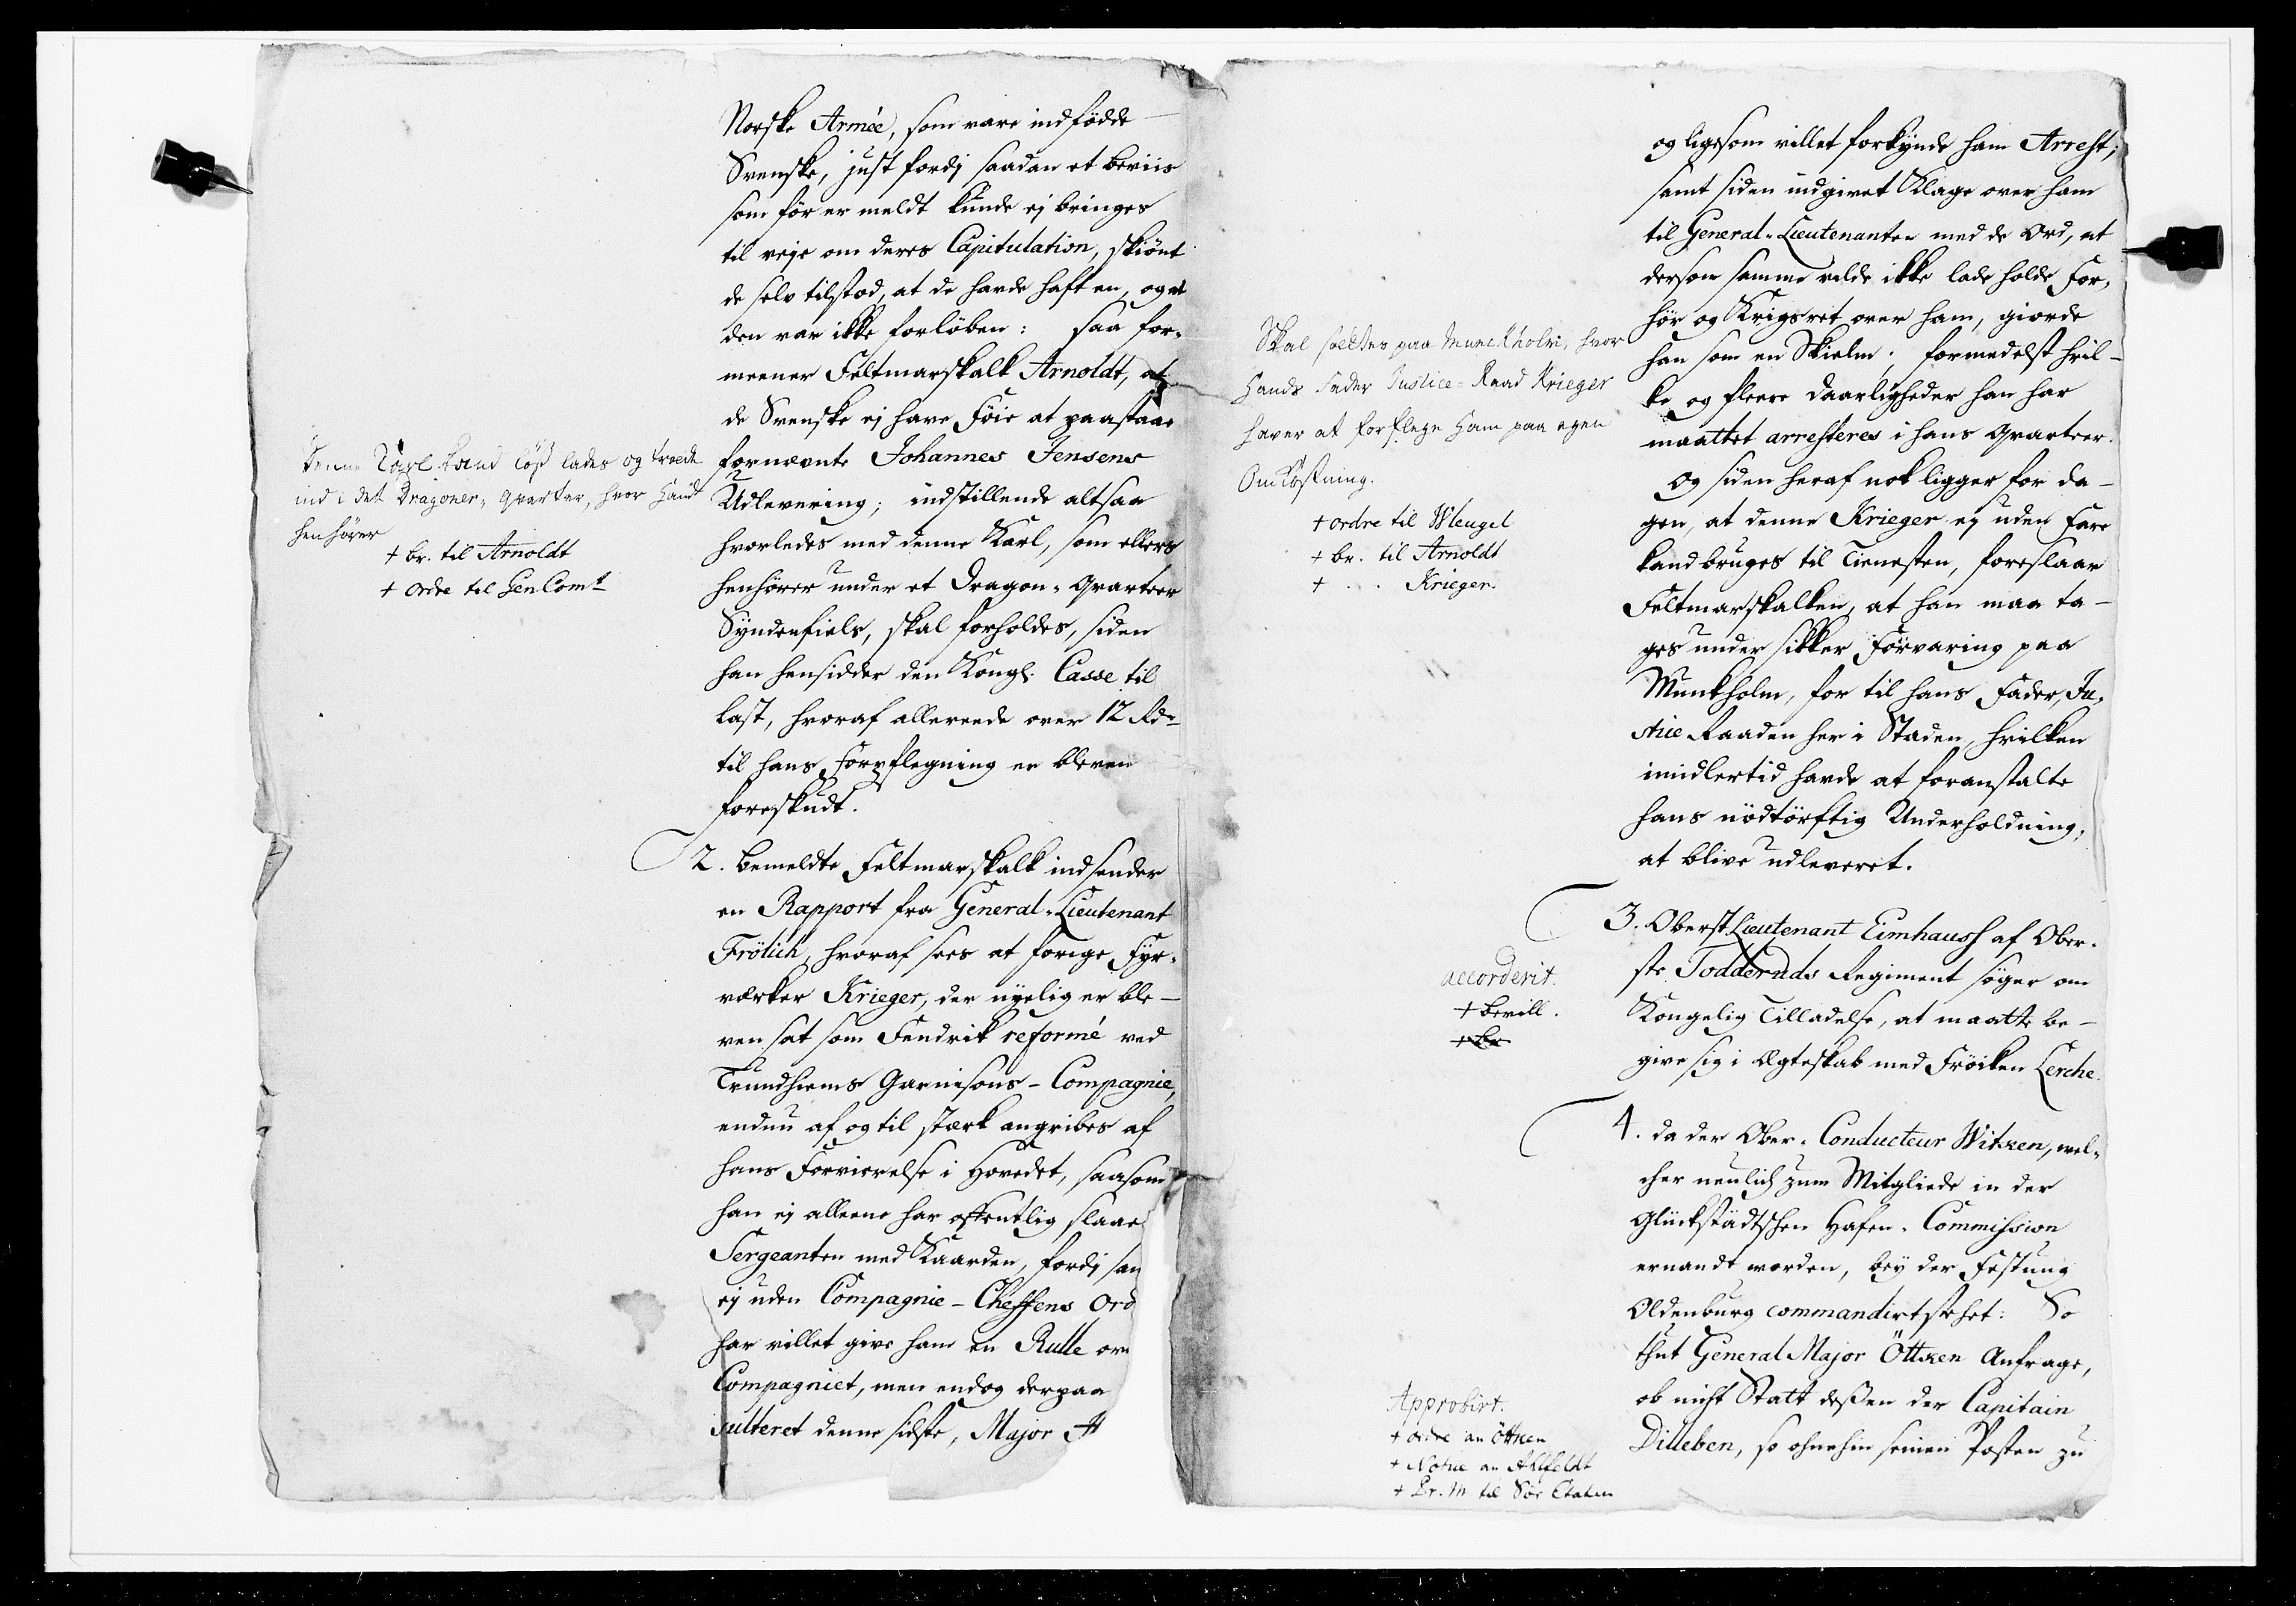 Norske Armée, som vare indfödde
Svenske, just fordi saadan et beviis
som för er meldt kunde ej bringes
til veje om deres Capitulation, skiönt
de selv tilstod, at de havde haft en, og at
den var ikke forlöben: saa for-
meener Feltmarskalk Arnoldt, at
de Svenske ej have Föie at paastaae
fornævnte Johannes Jensens
Udlevering; indstillende altsaa
hvorledes med denne Karl, som ellers
henhörer under et Dragon-Qvarteer
Syndenfiels, skal forholdes, siden
han hensidder den Kongl. Casse til
Last, hvoraf allereede over 12 Rdr
til hans Forpflegning er bleven
foreskudt.
Denne Karl kand löß lades og træde
ind i det Dragoner-Qvarter, hvor hand
henhörer
+ br. til Arnoldt
+ ordre til GenComt
2. bemeldte Feltmarskalk indsender
en Rapport fra General-Lieutenant
Frölich, hvoraf sees at forige Fyr-
værker Krieger, der nyelig er ble-
ven sat som Fendrik reformé ved
Trundhiems Garnisons-Compagnie,
endnu af og til stærk angribes af
hans Forvirrelse i Hovedet, saasom
han ej alleene har offentlig slaaet
Sergeanten med Kaarden, fordi han
ej uden Compagnie-Cheffens Ord
har villet give ham en Rulle over
Compagniet, men endog derpaa
sulteret denne sidste, Major
og ligesom villet forkynde ham Arrest;
samt siden indgivet Klage over ham
til General-Lieutenanten med de Ord, at
dersom samme vilde ikke lade holde For-
hör og Krigsret over ham, giorde
han som en Skielm; formedelst hvil-
ke og fleere Daarligheder han har
maattet arresteres i hans Qvarteer.
Og siden heraf nok ligger for Da-
gen, at denne Krieger ej uden Fare
kand bruges til Tienesten, foreslaar
Feltmarskalken, at han maa ta-
ges under sikker Forvaring paa
Munkholm, for til hans Fader, Ju-
stice Raaden her i Staden, hvilken
imidlertid havde at foranstalte
hans nödtörftig Underholdning,
at blive udleveret.
Skal sættes paa Munckholm, hvor
hands Fader Justice-Raad Krieger
haver at forplege ham paa egen
Omkostning.
+ ordre til Wleugel
+ br. til Arnoldt
+ . . Krieger.
3. Oberst Lieutenant Eimhauss af Ober-
ste Todderuds Regiment söger om
Kongelig Tilladelse, at maatte be-
give sig i Ægteskab med Fröiken Lerche.
accorderit.
+ bevill.
+ br
4. da der Ober-Conducteur Witken, wel-
cher neulich zum Mitgliede in der
Glückstädtschen Hafen-Commission
ernandt worden, bey der Festung
Oldenburg commandirt stehet: So
thut General Major Öttken Anfrage,
ob nicht Statt deßen der Capitain
Dilleben, so ohnehin seinen Posten zu
Approbirt.
+ ordre an Öttken
+ Notice an Ahlfeldt
+ Pr. M til Söe Etaten